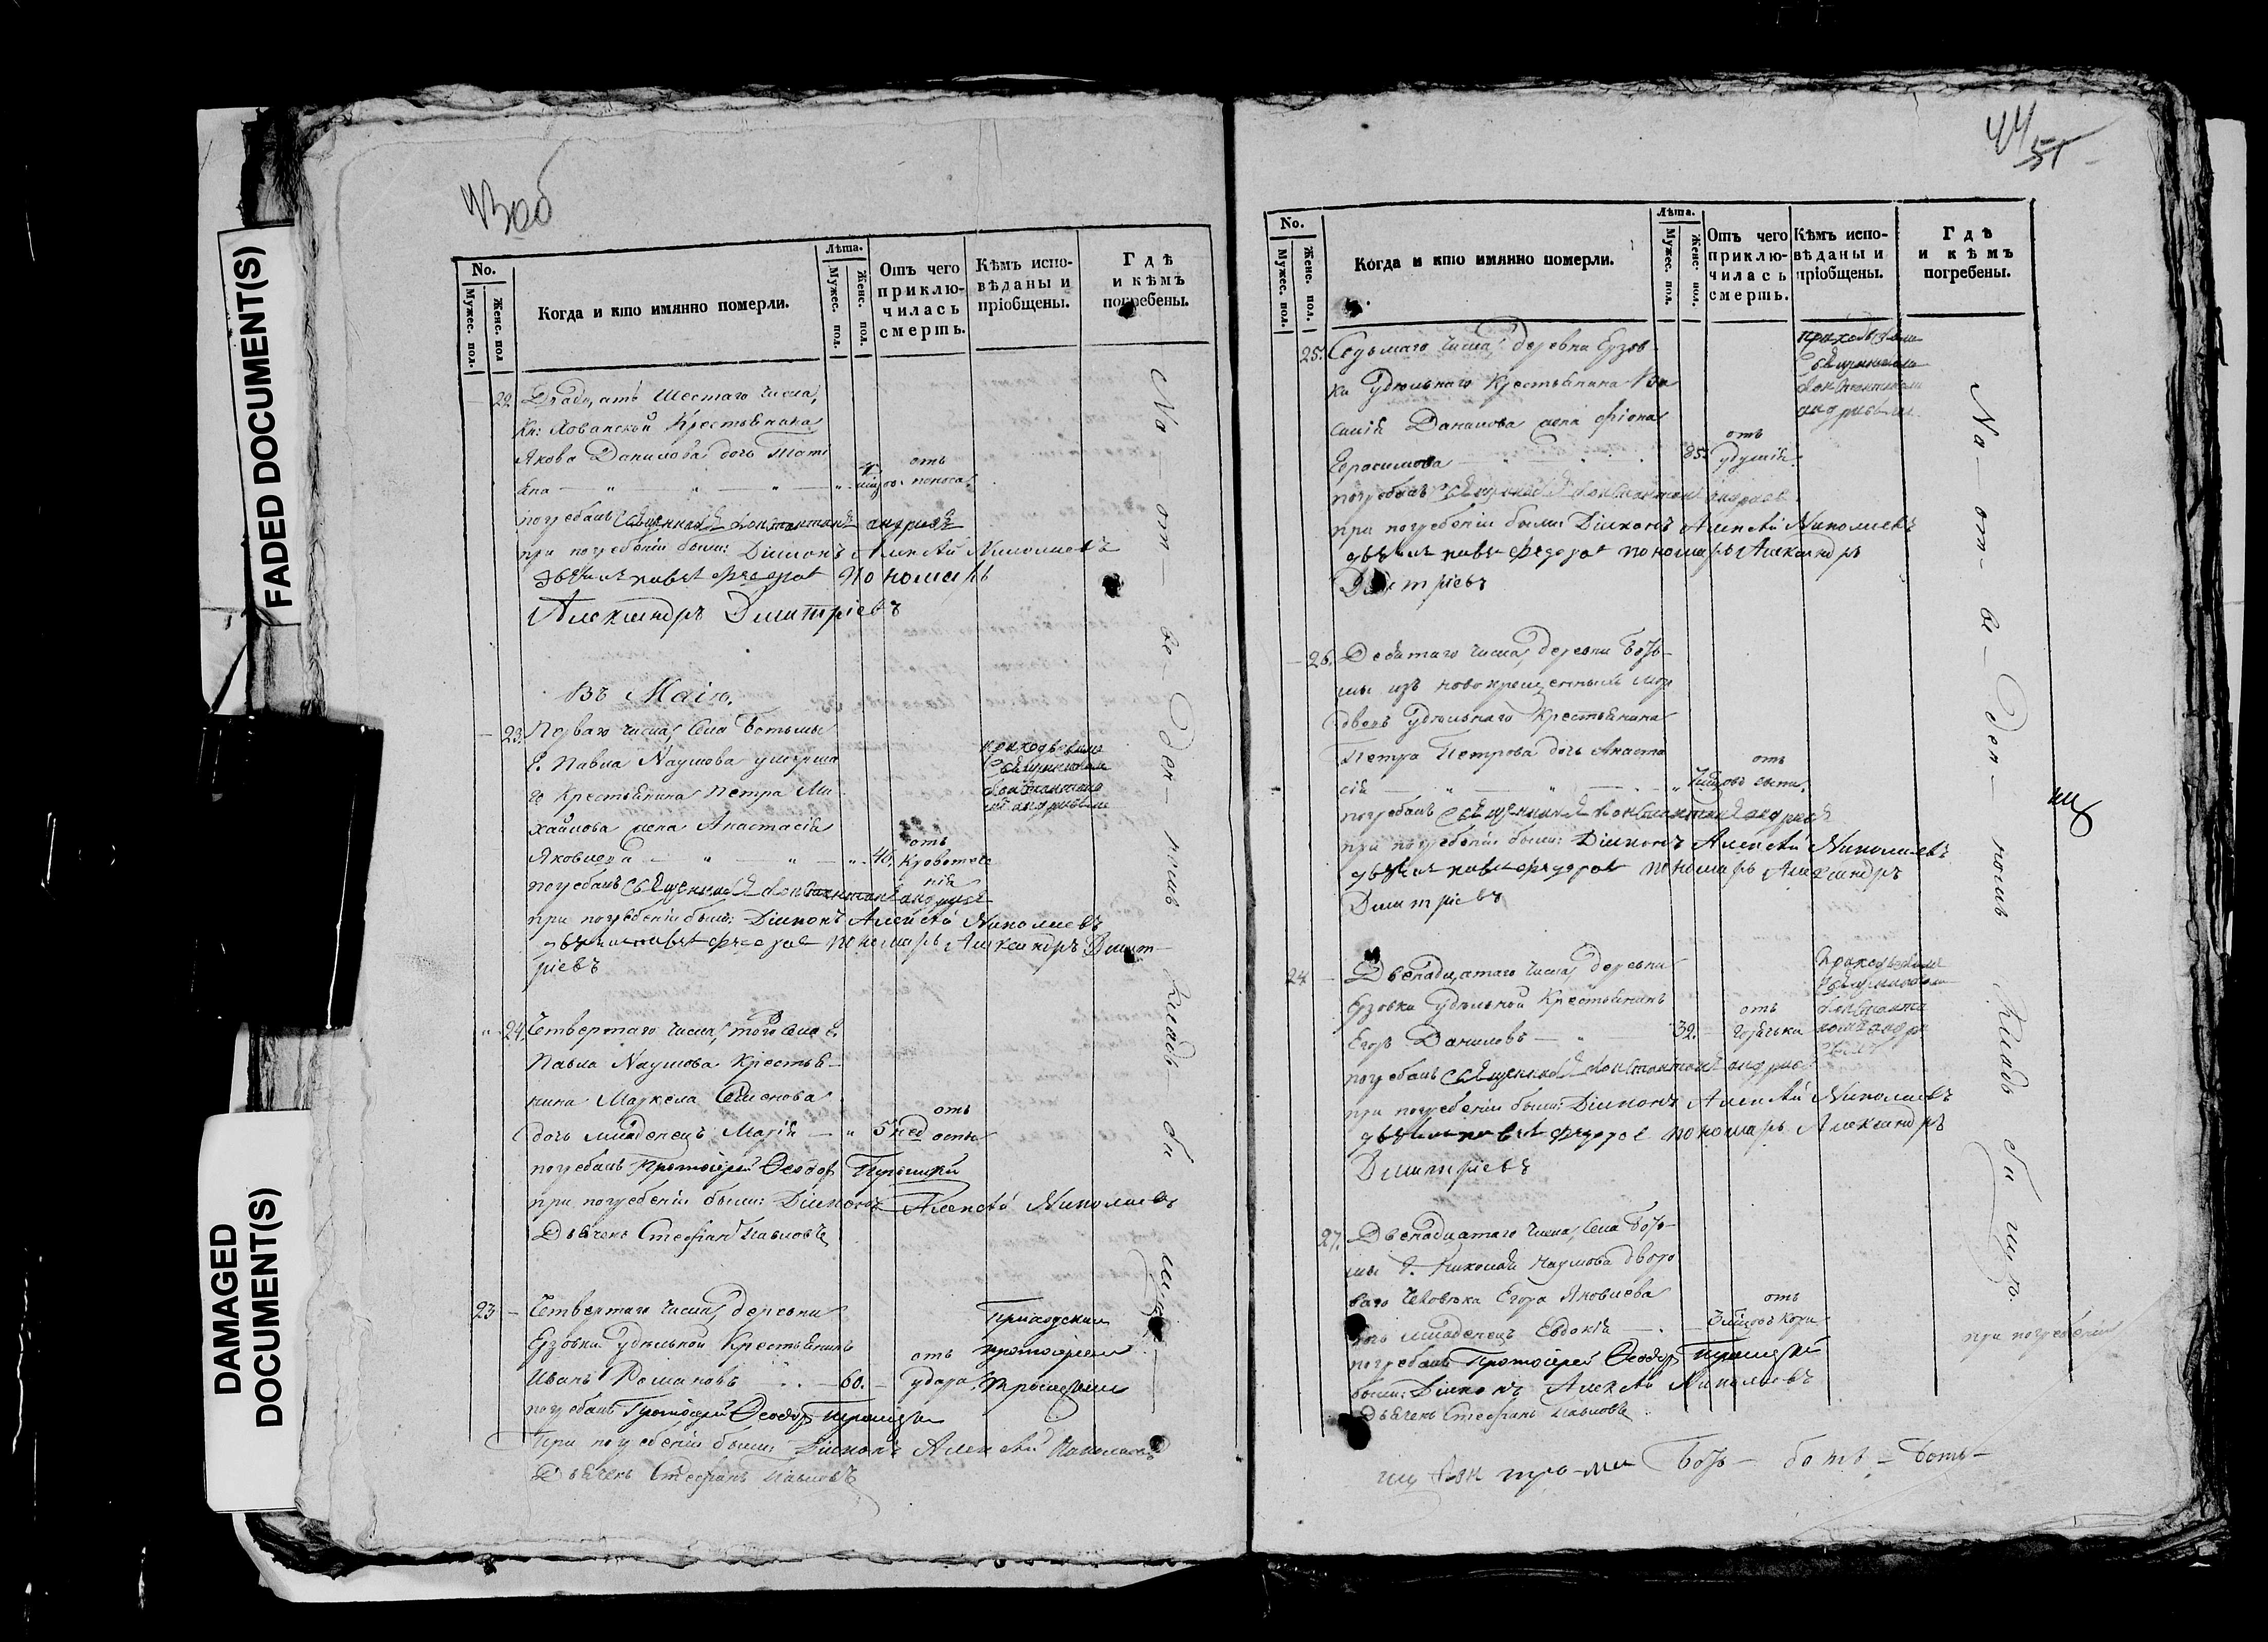 FADED DOCUMENT(S)
DAMAGED
DOCUMENT(S)
43об
No.
Мужес. пол.
Женс. пол
Когда и кто имянно померли.
Лѣта.
Мужес. пол.
Женс. пол.
Отъ чего
приклю-
чилась
смерть.
Кѣмъ испо-
вѣданы и
пріобщены.
Гдѣ
и кѣмъ
погребены.
22. Двадцать Шестаго числа,
Кн: Хованской Крестьянина
Якова Данилова дочь Тати
яна
отъ
поноса
погребалъ Священникъ Константинъ Андреевъ
при погребеніи были: Діяконъ Алексѣй Николаевъ
дьячекъ Павелъ Федоровъ Пономарь
Александръ Дмитріевъ
Въ Маію.
23. Перваго числа, Села Ботьмы
Г. Павла Наумова умерша
го Крестьянина Петра Ми
хайлова жена Анастасія
Яковлева 46.
отъ
кровотече
нія
приходскимъ
Священникомъ
Константино
мъ Андреевым
погребалъ Священникъ Константинъ Андреевъ
при погребеніи были: Діяконъ Алексѣй Николаевъ
дьячекъ Павелъ Федоровъ пономарь Александръ Дмит-
ріевъ
24. Четвертаго числа, того Села Г.
Павла Наумова Крестья-
нина Маркела Семенова
дочь младенецъ Марія 5 нед
отъ
оспы
погребалъ Протоіерей Ѳеодоръ Троицкій
при погребеніи были: Діяконъ Алексѣй Николаевъ
Дьячекъ Стефанъ Павловъ
23 Четвертаго числа, деревни
Ерзовки Удѣльной Крестьянинъ
Иванъ Романовъ 60.
отъ
удара
Приходскимъ
протоіереемъ
Троицкимъ
погребалъ Протоіерей Ѳеодоръ Троицкій
При погребеніи были: Діяконъ Алексѣй Николаевъ
Дьячекъ Стефанъ Павловъ
На – от – ве – ден – номъ кладбищѣ
44/51
No.
Мужес. пол.
Женс. пол.
Когда и кто имянно померли.
Лѣта.
Мужес. пол.
Женс. пол.
Отъ чего
приклю-
чилась
смерть.
Кѣмъ испо-
вѣданы и
пріобщены.
Гдѣ
и кѣмъ
погребены.
25. Седьмаго числа, деревни Ерзов
ки Удѣльнаго Крестьянина Ва
силія Данилова жена Фіона
Герасимова 85.
отъ
удушія.
приходскимъ
Священником
Константином
Андреевым
погребалъ Священникъ Константинъ Андреев
при погребеніи были: Діяконъ Алексѣй Николаевъ
дьячекъ Павелъ Федоровъ пономарь Александръ
Дмитріевъ
26. Девятаго числа, деревни Боть-
мы изъ новокрещенныхъ мор
двовъ Удѣльнаго Крестьянина
Петра Петрова дочь Анаста
сія
отъ
погребалъ Священникъ Константинъ Андреев
при погребеніи были: Діяконъ Алексѣй Николаевъ
дьячекъ Павелъ Федоровъ пономарь Александръ
Дмитріевъ
24 Двенадцатаго числа, деревни
Ерзовки Удѣльной Крестьянинъ
Егоръ Даниловъ 32.
отъ
горячьки
Приходскимъ
Священником
Константи
номъ Андре
евымъ
погребалъ Священникъ Константинъ Андреев
при погребеніи были: Діяконъ Алексѣй Николаевъ
дьячекъ Павелъ Федоровъ пономарь Александръ
Дмитріевъ
27. Двенадцатаго числа, Села Боть-
мы Г. Николая Наумова дворо
ваго человѣка Егора Яковлева
дочь младенецъ Евдокія
отъ
кори
погребалъ Протоіерей Ѳеодоръ Троицкій
при погребеніи
были: Діяконъ Алексѣй Николаевъ
Дьячекъ Стефанъ Павловъ
На – от – ве – ден – номъ кладбищѣ.